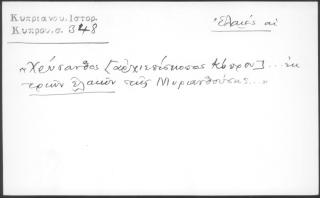 Κυπριανου. Ιστορ.
Κυπρου. σ. 348
ἐλαιές αἱ
"Χρύσανθος [ἀρχιεπίσκοπος Κύπρου] ... ἐκ
τριῶν ἐλαιῶν τῆς Μυριανθούσης ..."